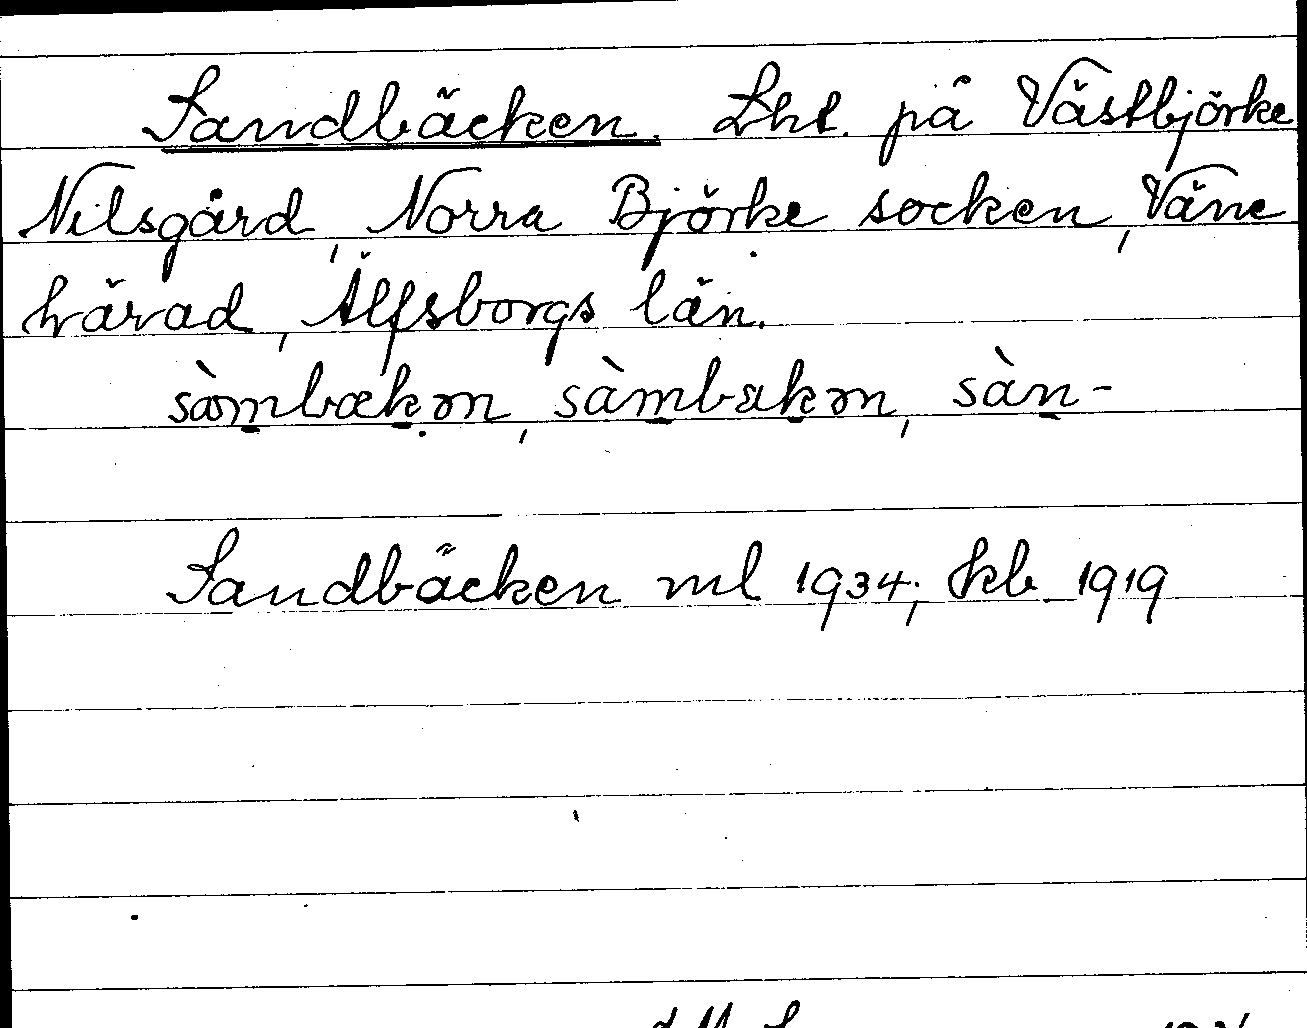 Sandbäcken. Lht. på Västbjörke
Nilsgård, Norra Björke socken, Väne
härad, Älfsborgs län.
sàmbækən, sàmbakən, sàn-
Sandbäcken ml 1934; Jkb 1919